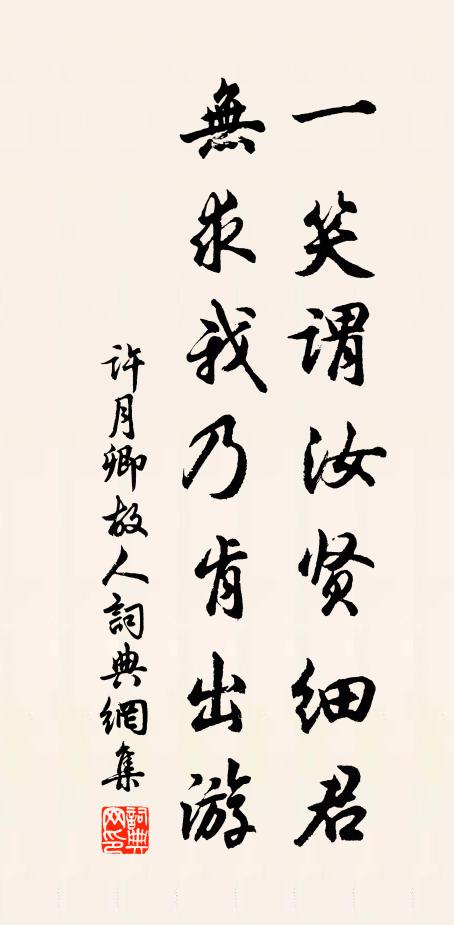 一笑谓汝贤细君
無求我乃肯出游
许月卿故人詞典網集
詞典网印